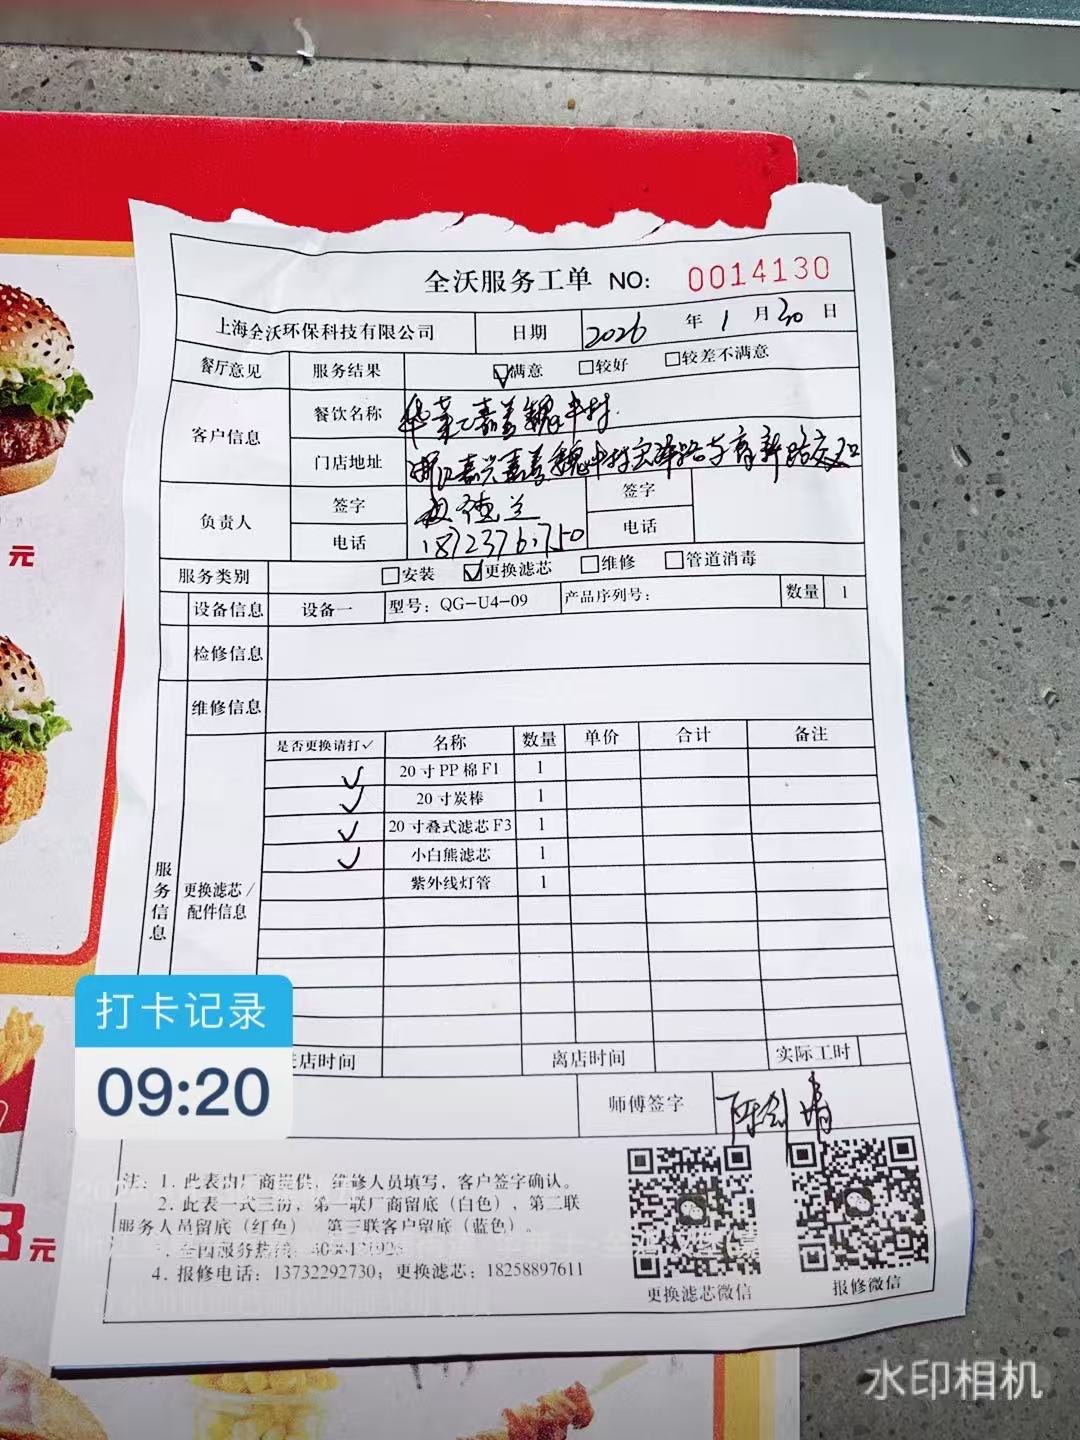 全沃服务工单 NO: 0014130
上海全沃环保科技有限公司 日期 2026 年 1 月 30 日
餐厅意见 服务结果 ☑满意 □较好 □较差不满意
客户信息 餐饮名称 华莱士嘉善魏中村
门店地址 浙江嘉兴嘉善魏中村 路与育新路交叉口
负责人 签字 签字
电话 18723761750 电话
服务类别 □安装 ☑更换滤芯 □维修 □管道消毒
设备信息 设备一 型号: QG-U4-09 产品序列号: 数量 1
检修信息
维修信息
服务信息
更换滤芯/
配件信息
是否更换请打✓ 名称 数量 单价 合计 备注
✓ 20寸PP棉F1 1
✓ 20寸炭棒 1
✓ 20寸叠式滤芯F3 1
✓ 小白熊滤芯 1
紫外线灯管 1
店时间 离店时间 实际工时
师傅签字 陈剑清
打卡记录
09:20
注: 1. 此表由厂商提供, 维修人员填写, 客户签字确认。
2. 此表一式三份, 第一联厂商留底 (白色), 第二联
服务人员留底 (红色) 第三联客户留底 (蓝色)。
全国服务热线
4. 报修电话: 13732292730; 更换滤芯: 18258897611
更换滤芯微信 报修微信
水印相机